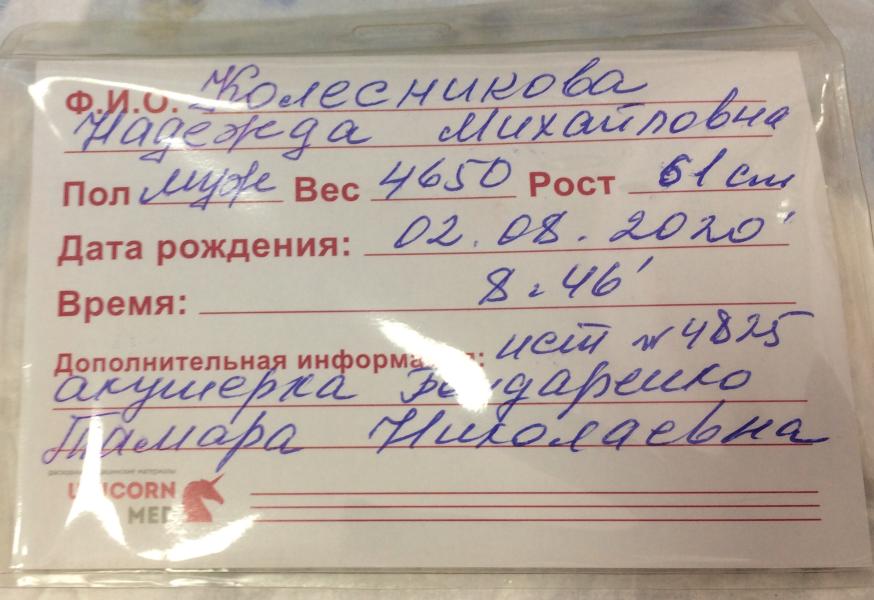 Ф.И.О. Колесникова
Надежда Михайловна
Пол муж Вес 4650 Рост 61 см
Дата рождения: 02.08.2020'
Время: 8.46'
Дополнительная информация: ист №4825
акушерка Бондаренко
Тамара Николаевна
расходные медицинские материалы
UNICORN
MED